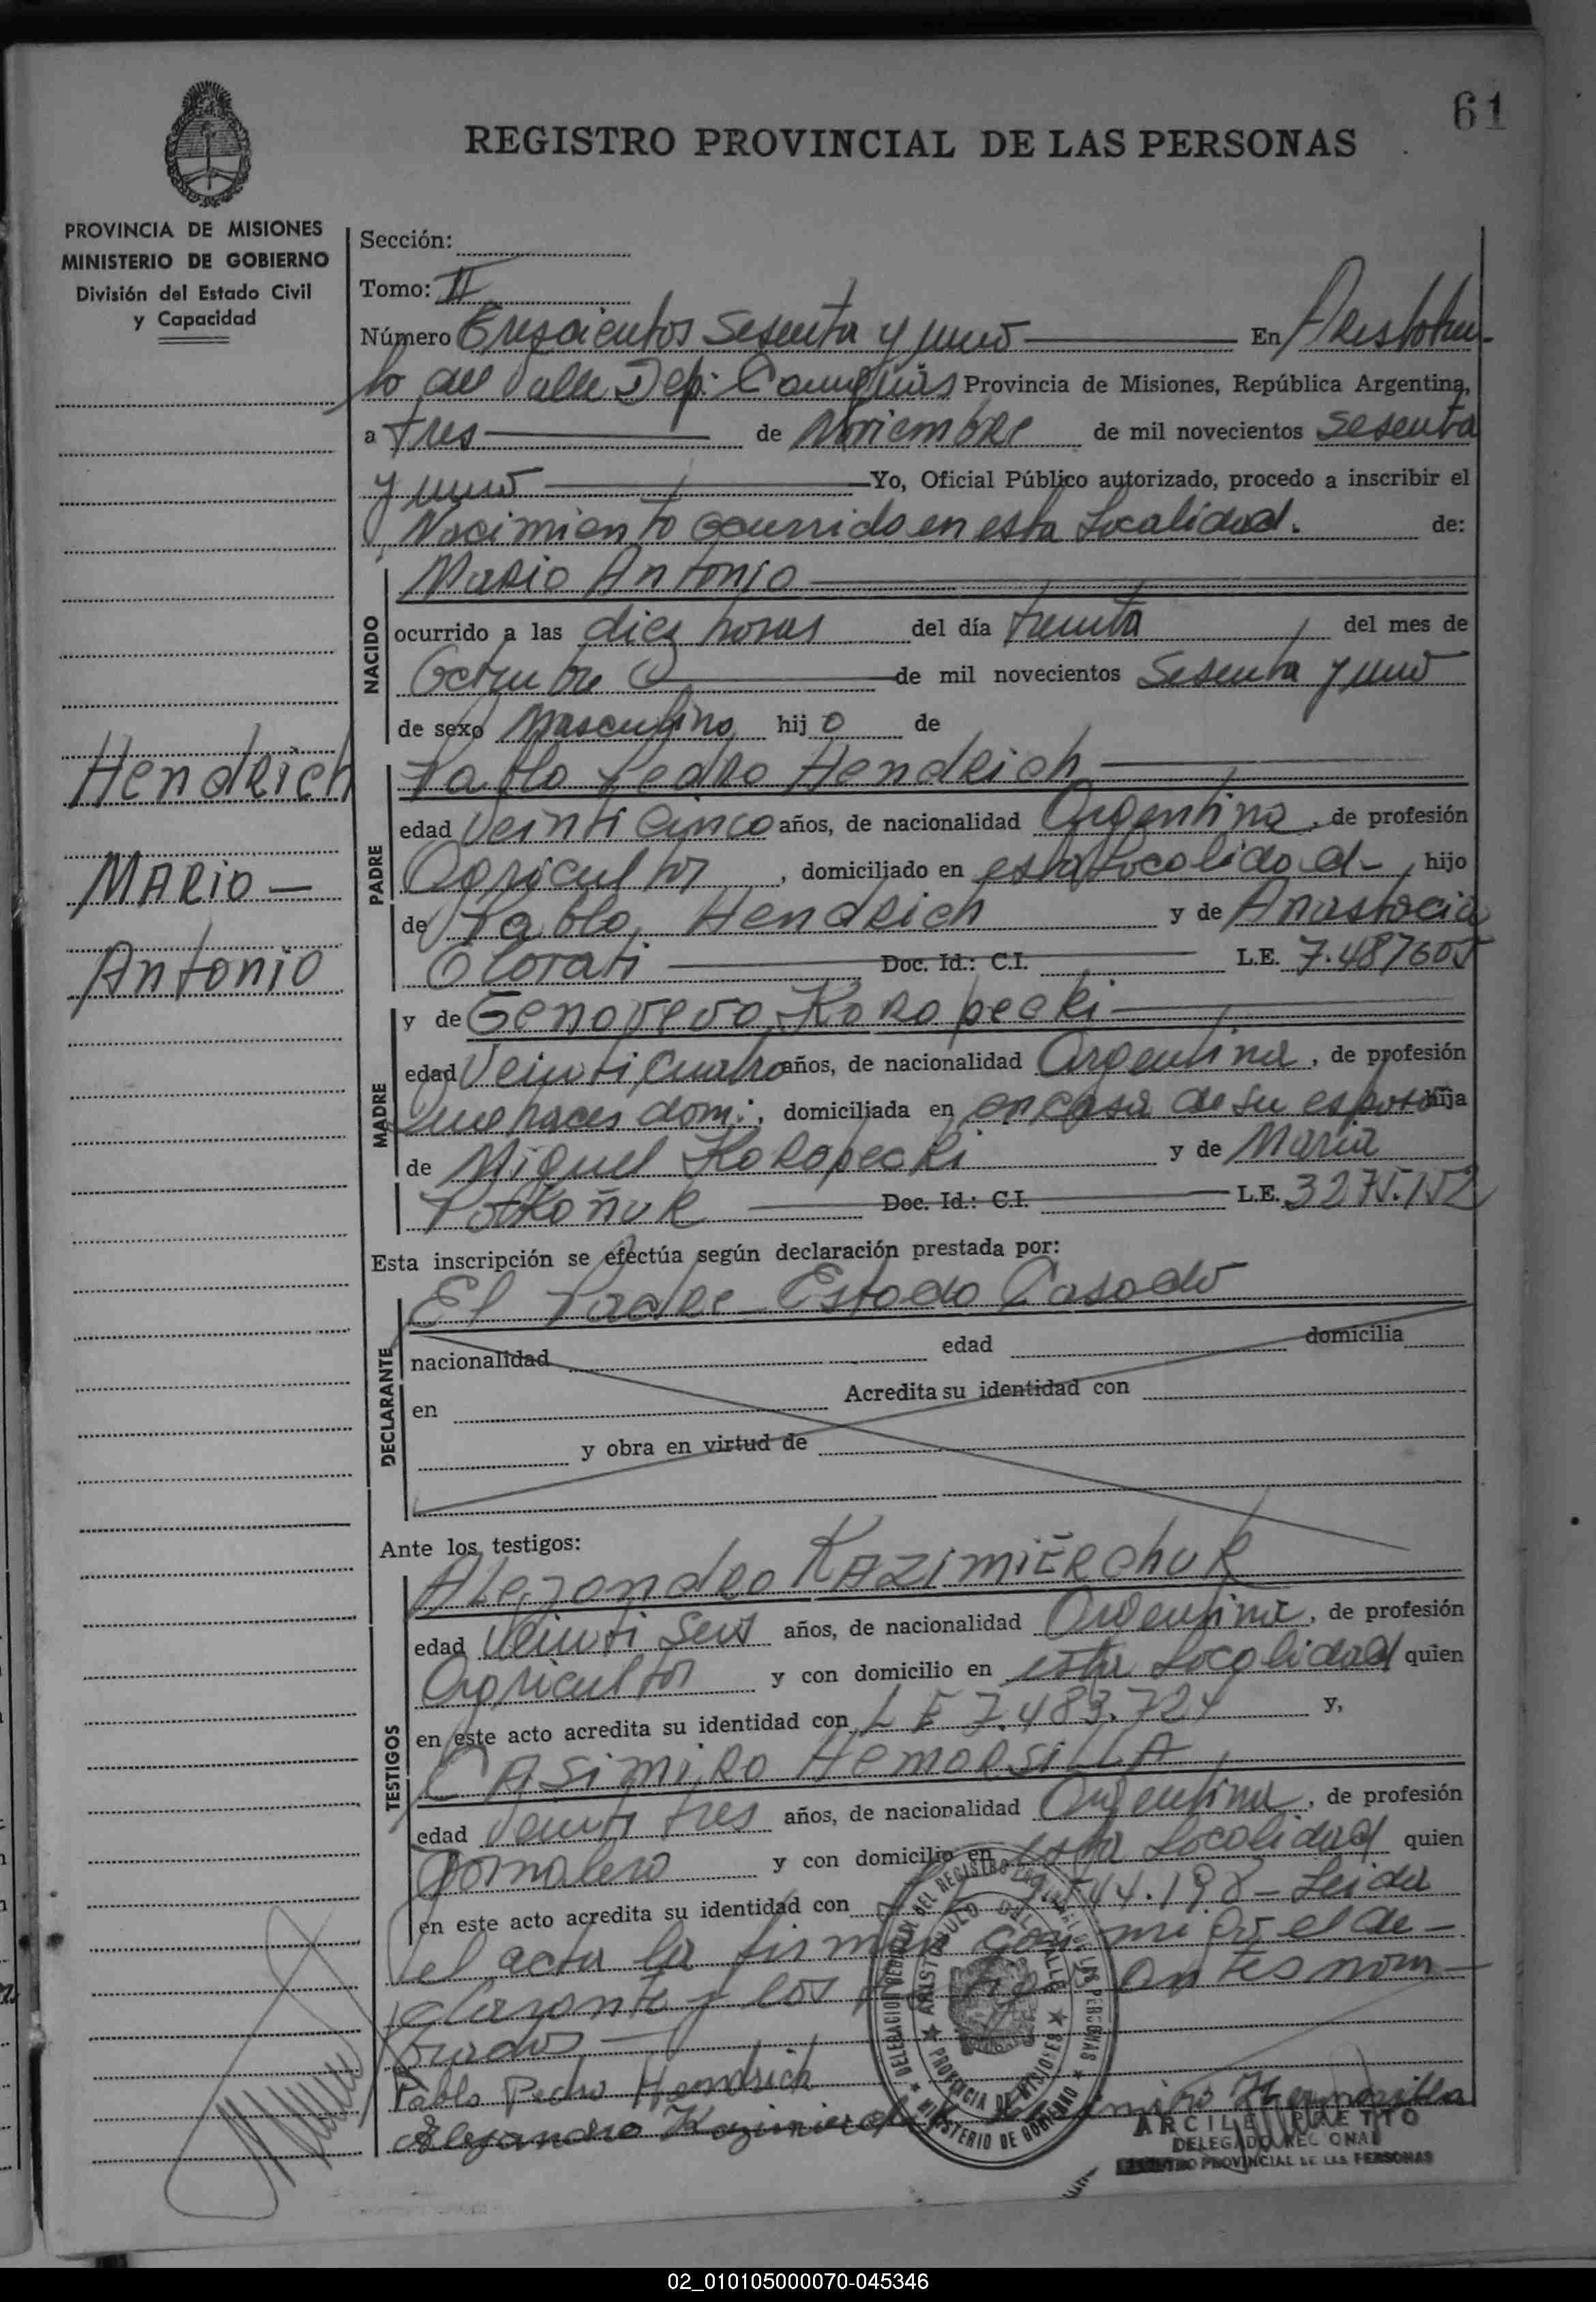 61
REGISTRO PROVINCIAL DE LAS PERSONAS
PROVINCIA DE MISIONES
MINISTERIO DE GOBIERNO
División del Estado Civil
y Capacidad
Sección:
Tomo: II
Número Trescientos Sesenta y uno En Aristobu-
lo del Valle Dep: Cainguás Provincia de Misiones, República Argentina,
a tres de Noviembre de mil novecientos sesenta
y uno Yo, Oficial Público autorizado, procedo a inscribir el
Nacimiento ocurrido en esta Localidad. de:
NACIDO
Mario Antonio
ocurrido a las diez horas del día treinta del mes de
Octubre de mil novecientos Sesenta y uno
de sexo masculino hij o de
Hendrich
Mario –
Antonio
PADRE
Pablo Pedro Hendrich
edad Veinti cinco años, de nacionalidad Argentina, de profesión
Agricultor, domiciliado en esta Localidad-, hijo
de Pablo Hendrich y de Anastacia
Olorati Doc. Id.: C.I. L.E. 7.487605
MADRE
y de Genoveva Koropecki
edad Veinti Cuatro años, de nacionalidad Argentina, de profesión
Quehaces dom:, domiciliada en en casa de su esposo hija
de Miguel Koropecki y de Maria
Doc. Id.: C.I. L.E. 3275.152
Esta inscripción se efectúa según declaración prestada por:
DECLARANTE
El Padre - Estado Casado
nacionalidad edad domicilia
en Acredita su identidad con
y obra en virtud de
Ante los testigos:
TESTIGOS
Alejandro KAZIMIERCHUK
edad Veinti Seis años, de nacionalidad Argentina, de profesión
Agricultor y con domicilio en esta Localidad quien
en este acto acredita su identidad con L E 7.483.724 y,
CASIMIRO HEMORSILLA
edad Veinti tres años, de nacionalidad Argentina, de profesión
Jornalero y con domicilio en esta Localidad quien
en este acto acredita su identidad con 544.198 – Leida
el acta la firman con migo el de-
clarante y los antes nom-
brados
Pablo Pedro Hendrich
Alejandro Kazimierchuk Casimiro Hermosilla
DELEGACION REGIONAL DEL REGISTRO PROVINCIAL DE LAS PERSONAS
MINISTERIO DE GOBIERNO
ARISTOBULO DEL VALLE
PROVINCIA DE MISIONES
DELEGADO REGIONAL
REGISTRO PROVINCIAL DE LAS PERSONAS
02_010105000070-045346